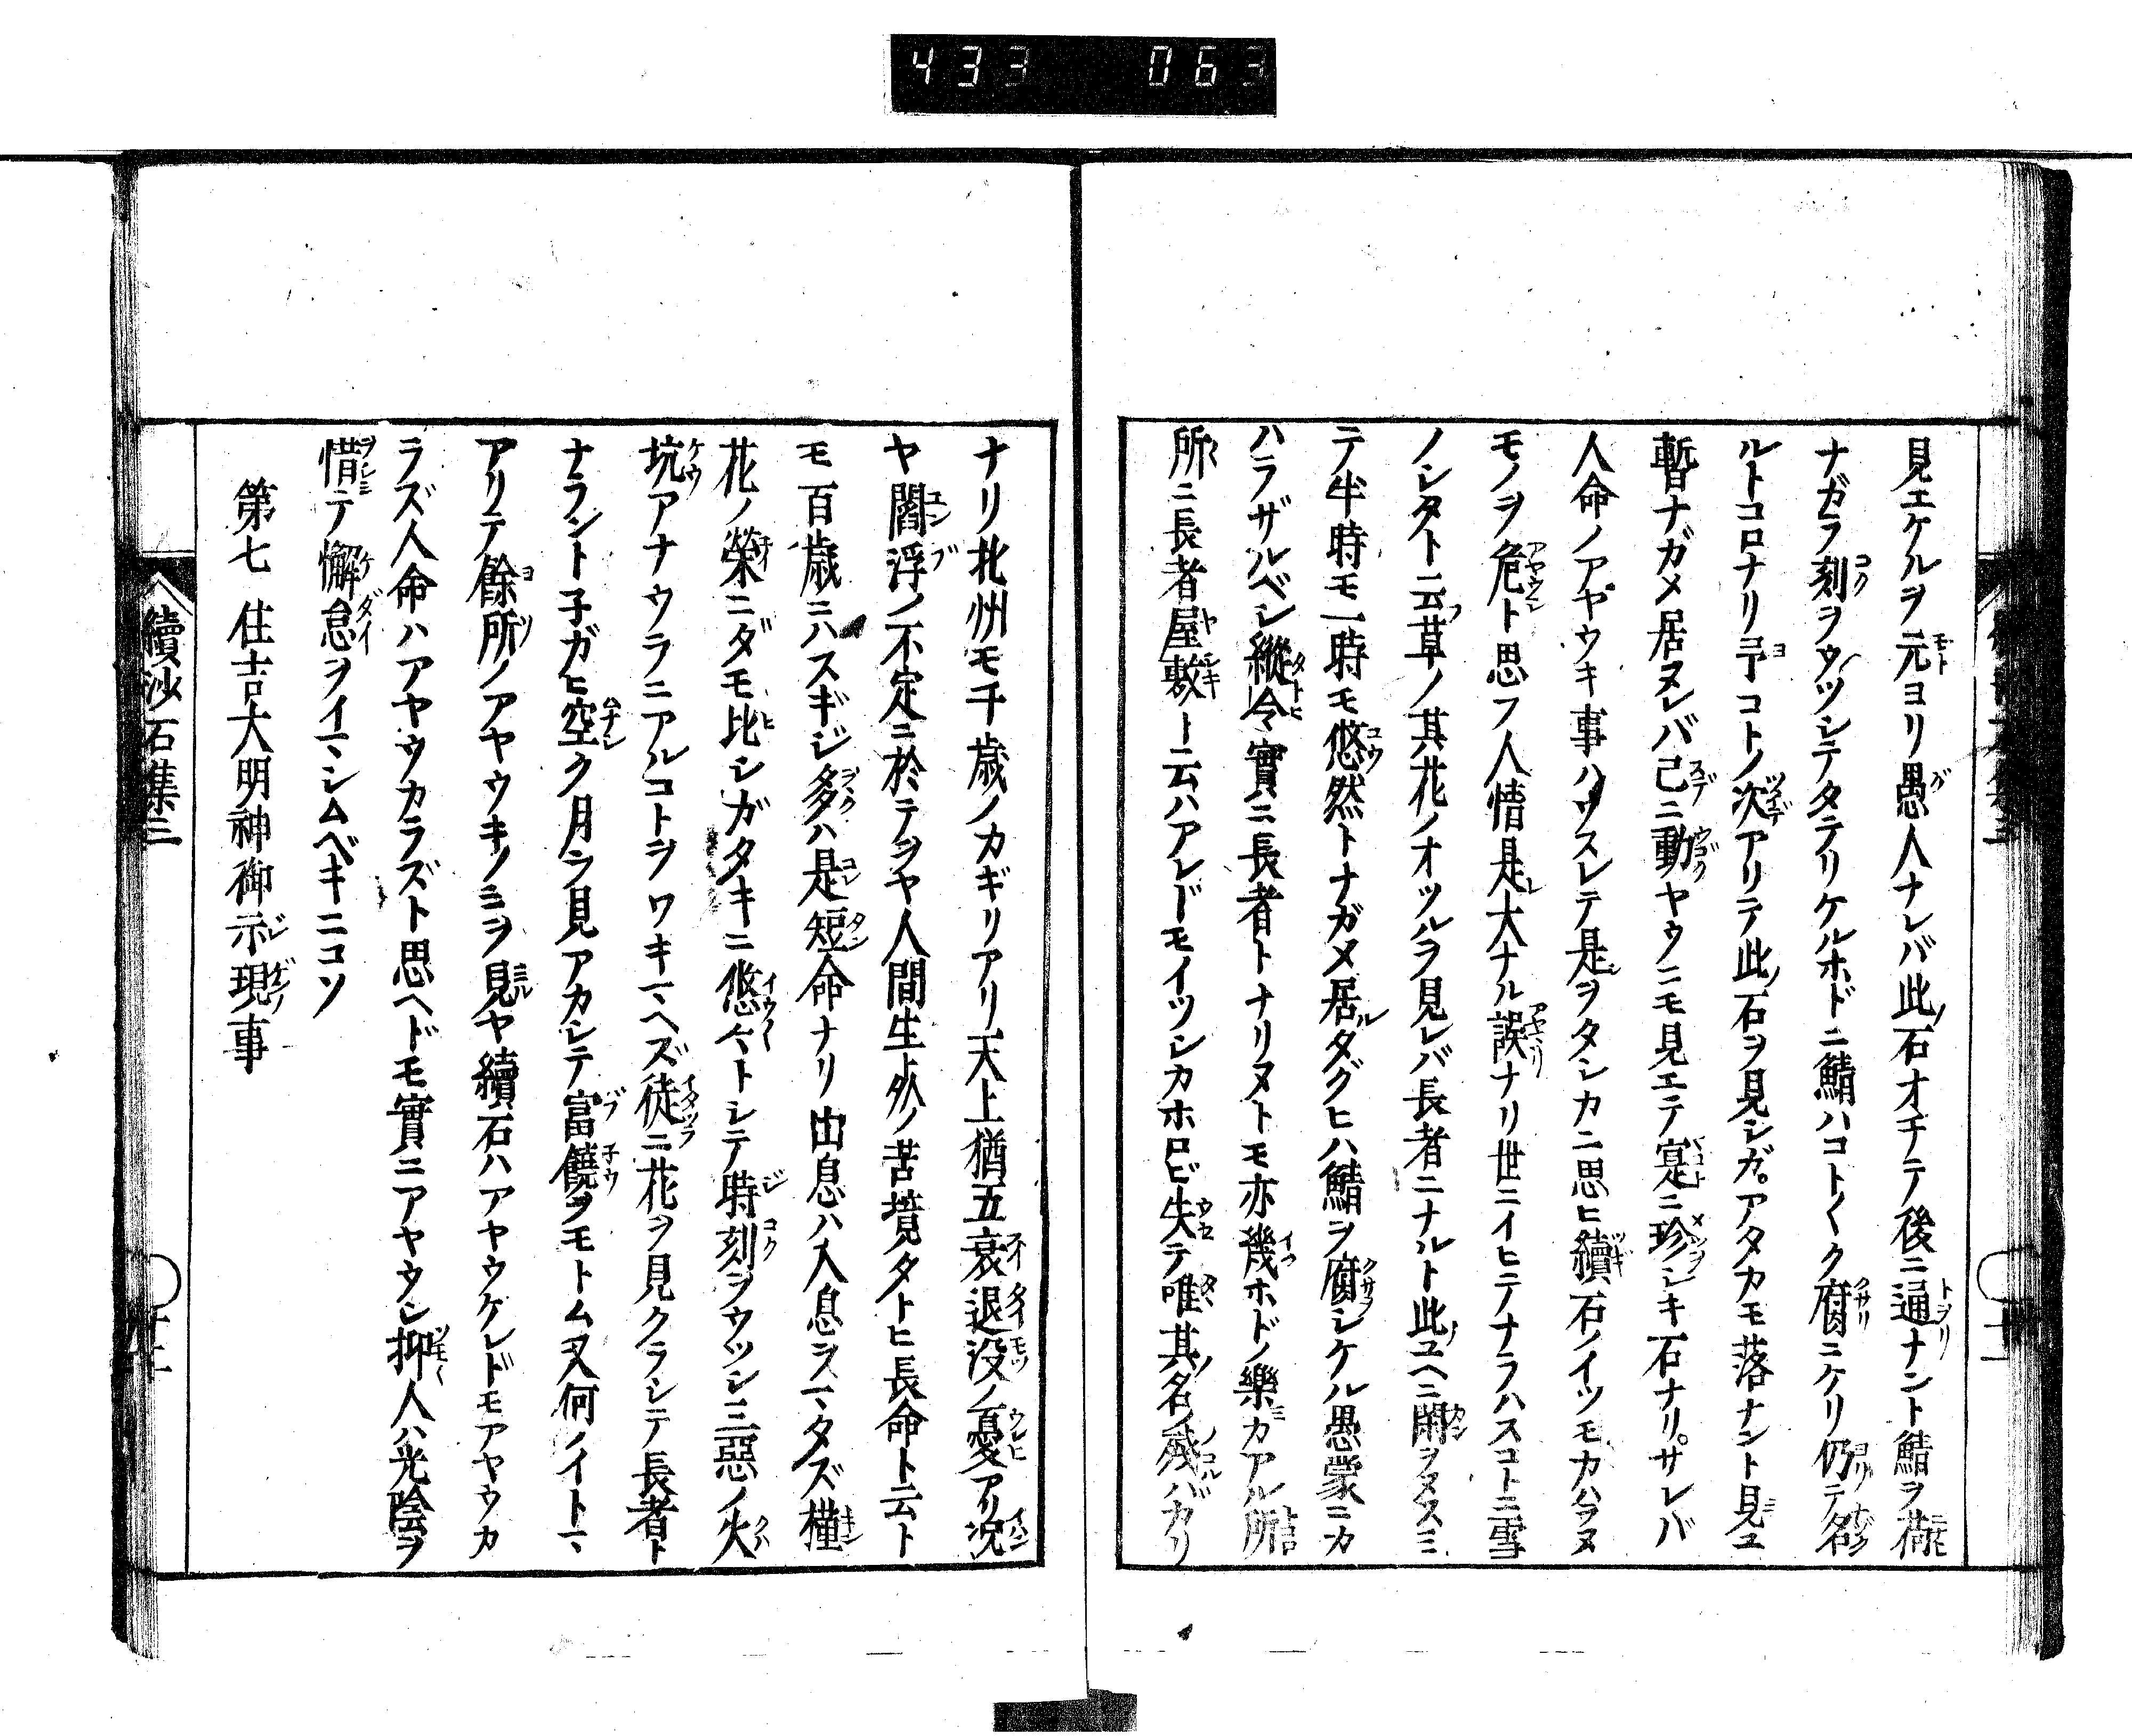 433 063
見エケルヲ元ヨリ愚人ナレバ此ノ石オチテ後ニ通ナント鯖ヲ荷
ナガラ刻ヲウツシテタテリケルホドニ鯖ハコト〱ク腐ニケリ仍テ名
ルトコロナリ予コトノ次アリテ此ノ石ヲ見シガ。アタカモ落ナント見ユ
暫ナガメ居ヌレバ已ニ動ヤウニモ見エテ寔ニ珍シキ石ナリ。サレバ
人命ノアヤウキ事ハワスレテ是ヲタシカニ思ヒ續石ノイツモカハラヌ
モノヲ危ト思フ人情是レ大ナル誤ナリ世ニイヒテナラハスコトニ雪
ノシタト云フ草ノ其花ノオツルヲ見レバ長者ニナルト此ノユヘニ閑ヲヌスミ
テ半時モ一時モ悠然トナガメ居ルタグヒハ鯖ヲ腐シケル愚蒙ニカ
ハラザルベシ縱令實ニ長者トナリヌトモ亦幾ホドノ樂ミカアル所
所ニ長者屋敷ト云ハアレドモイツシカホロビ失テ唯其ノ名ノ殘ルバカリ
ナリ北州モ千歳ノカギリアリ天上猶五衰退没ノ憂アリ況
ヤ閻浮ノ不定ニ於テヲヤ人間生レ外ノ苦境タトヒ長命ト云ト
モ百歳ニハスギジ多ハ是短命ナリ出息ハ入息ヲマタズ槿
花ノ榮ニダモ比シガタキニ悠々トシテ時刻ヲウツシ三惡ノ火
坑アナウラニアルコトヲワキマヘズ徒ニ花ヲ見クラシテ長者ト
ナラント子ガヒ空ク月ヲ見アカシテ富饒ヲモトム又何ノイトマ
アリテ餘所ノアヤウキノミヲ見ルヤ續石ハアヤウケレドモアヤウカ
ラズ人命ハアヤウカラズト思ヘドモ實ニアヤウシ抑人ハ光陰ヲ
惜テ懈怠ヲイマシムベキニコソ
第七 住吉大明神御示現事
續沙石集三